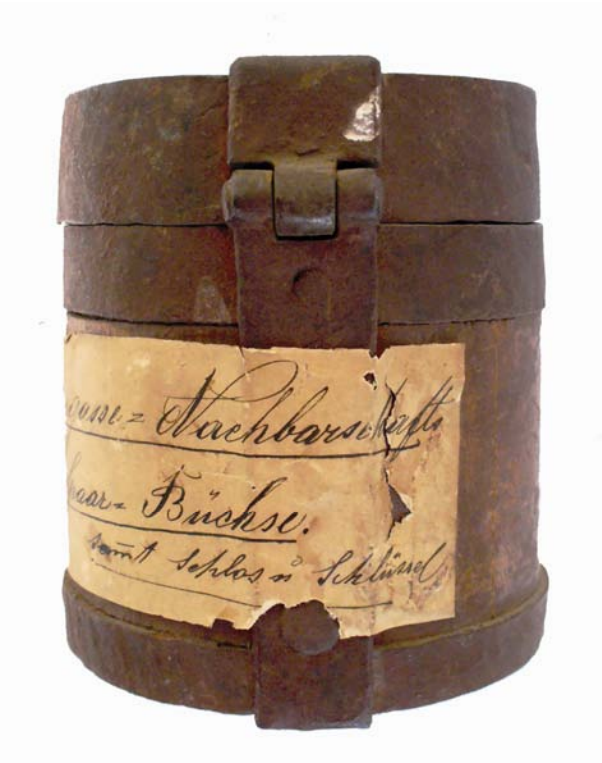 gasse= Nachbarschafts
baar= Büchse.
sam̄t Schlos ů Schlüssel